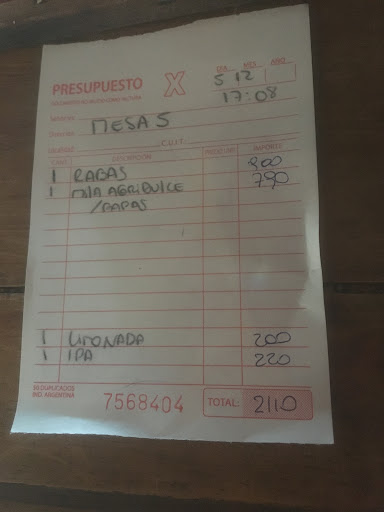 PRESUPUESTO X
DIA MES AÑO
5 12
DOCUMENTO NO VALIDO COMO FACTURA
17:08
Señor/es:
MESA 5
Domicilio:
Localidad: C.U.I.T.:
CANT. DESCRIPCIÓN PREC. UNIT. IMPORTE
1 RABAS 900
1 AGRIDULCE 790
/PAPAS
1 LIMONADA 200
1 IPA 220
50 DUPLICADOS
IND. ARGENTINA
7568404
TOTAL: 2110